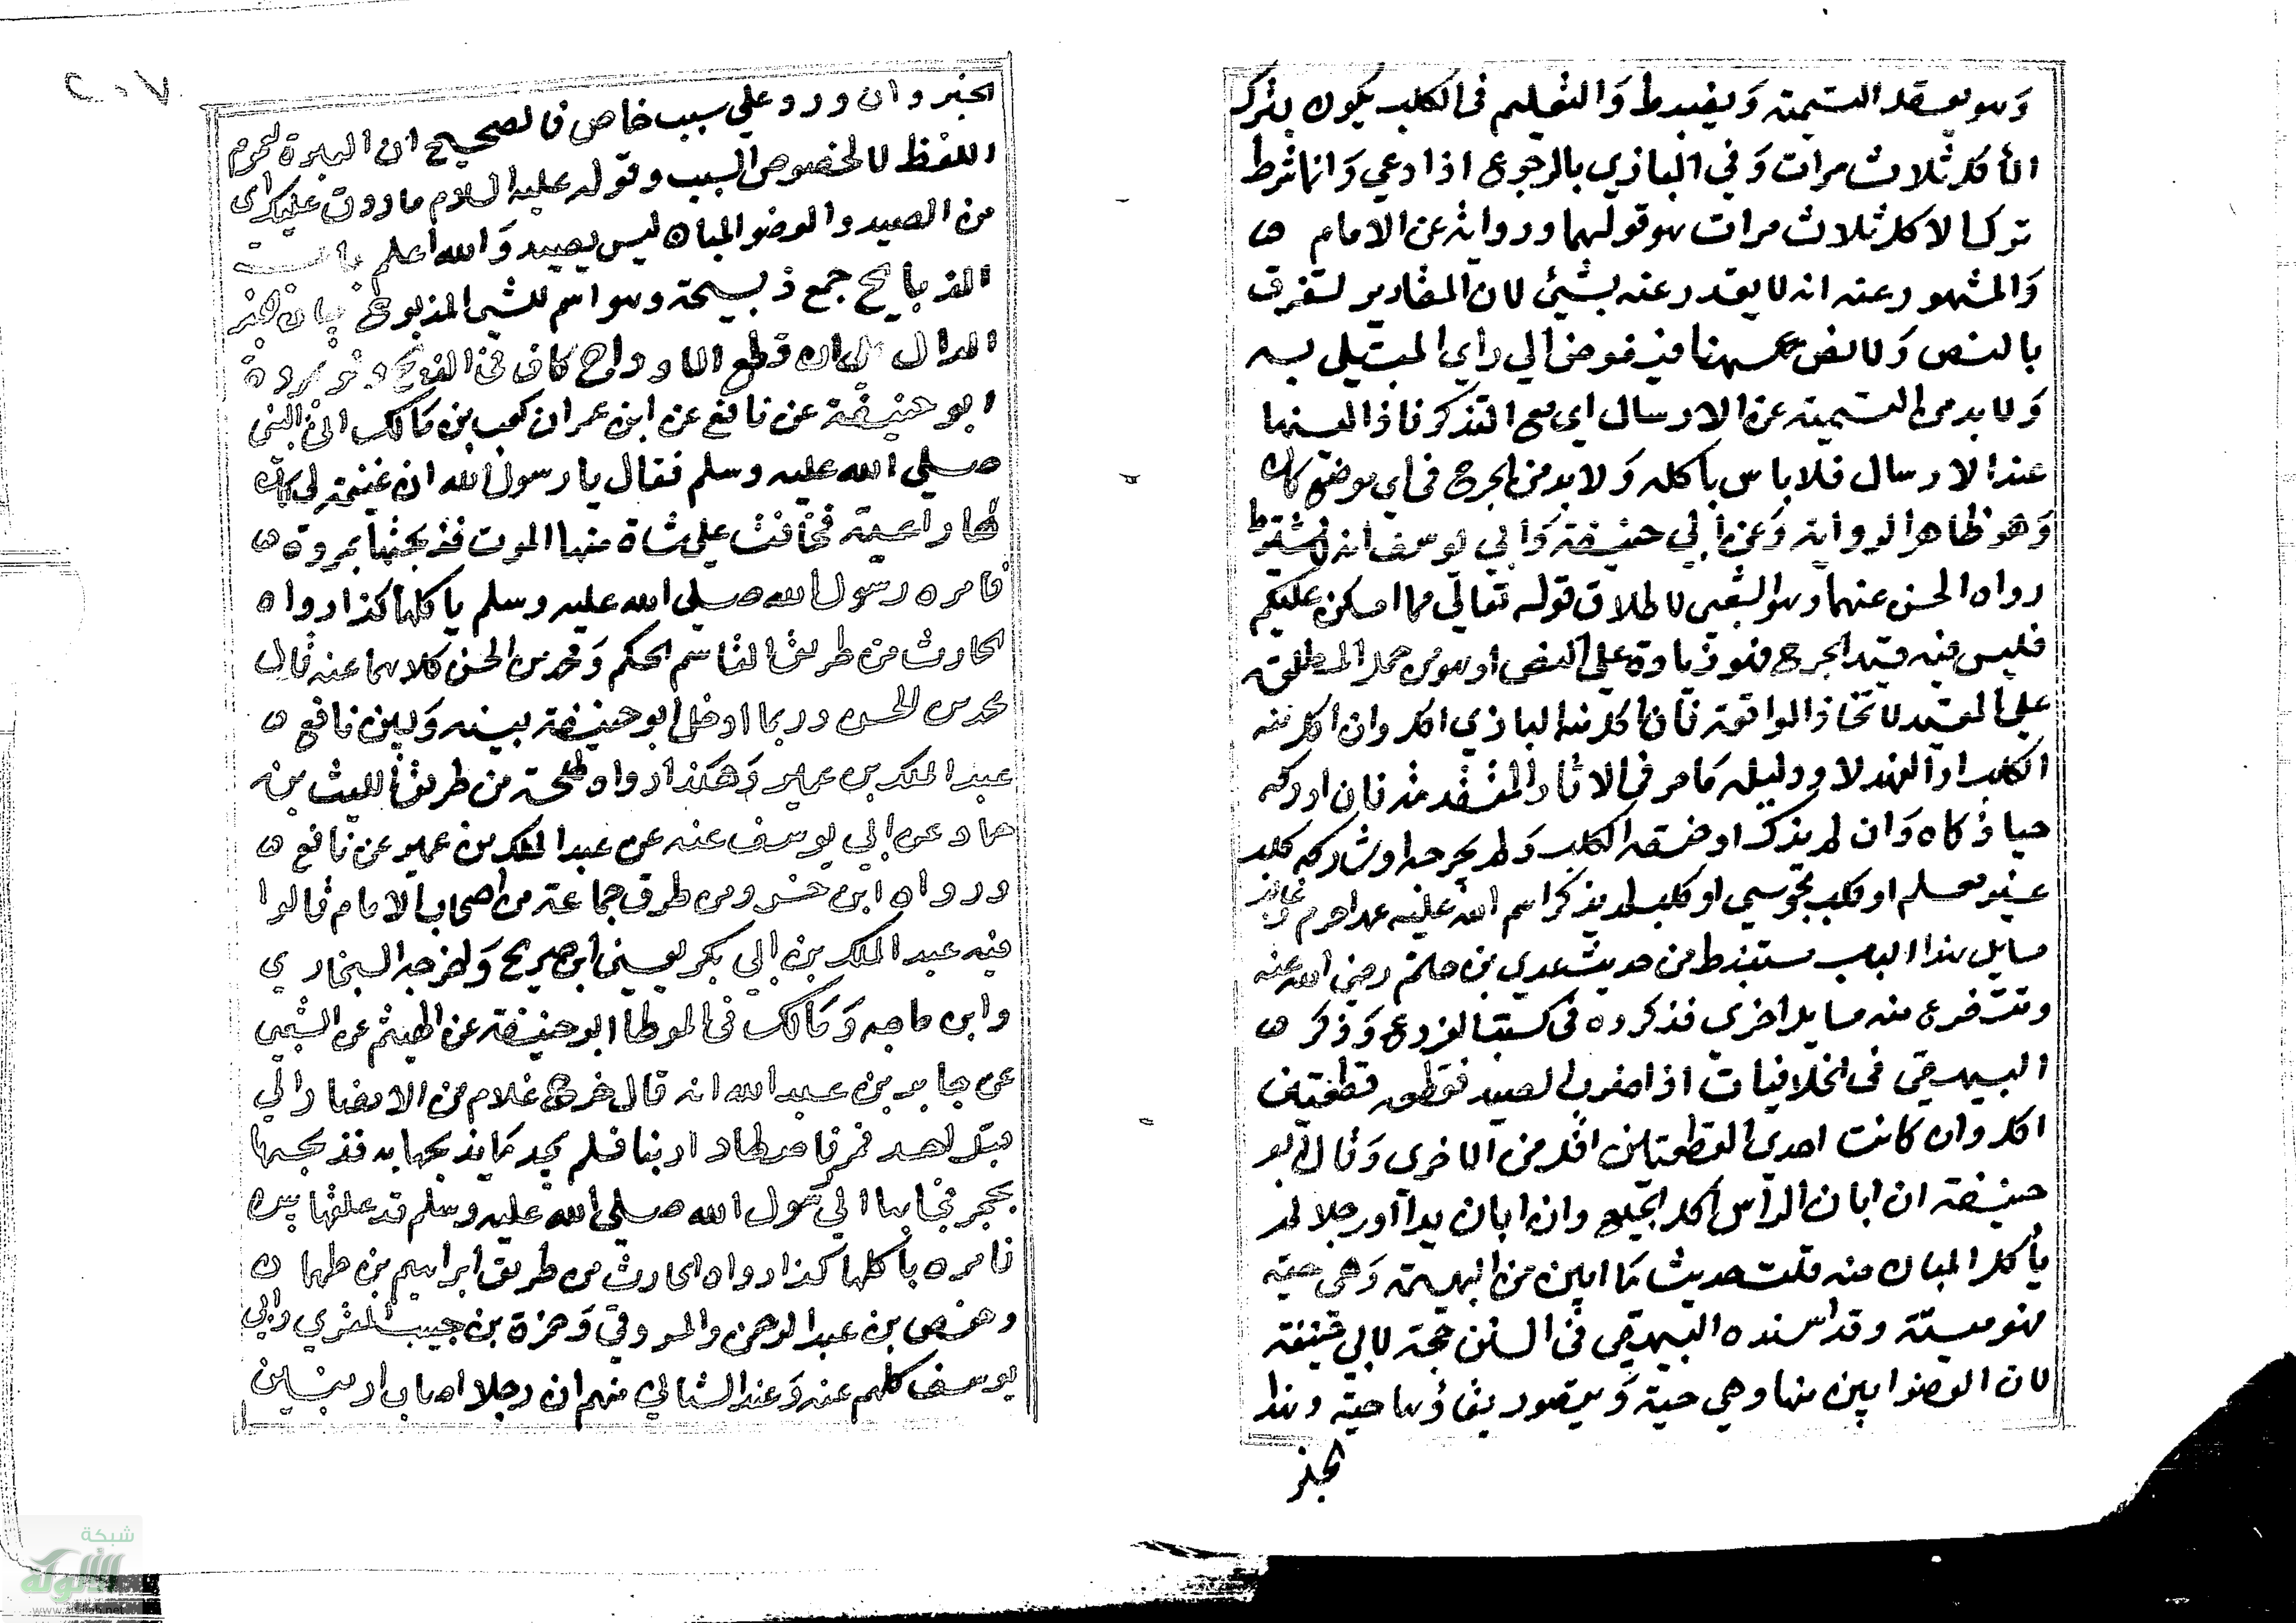 وهو يعقل التسمية ويضبط والتعليم في الكلب يكون بترك
الأكل ثلاث مرات وفي البازي بالرجوع اذا دعي وانما شرط
ترك الاكل ثلاث مرات هو قولهما ورواية عن الامام
والمشهور عنه انه لا يقدر عنه بشيء لان المقادير تعرف
بالنص ولا نص ههنا فيفوض الي راي المبتلى به
ولا بد من التسمية عن الارسال اي مع التذكر فاذا نسيها
عند الارسال فلا باس باكله ولا بد من الجرح في اي موضع كان
وهو ظاهر الرواية وعن ابي حنيفة وابي يوسف انه لا يشترط
رواه الحسن عنهما وهو الشعبى لاطلاق قوله تعالى مما امسكن عليكم
فليس فيه قيد الجرح فهو زيادة على النص او هو من حمل المطلق
على المقيد لاتحاذ الواقعة فان اكل منه البازي اكل وان اكل منه
الكلب او الفهد لا ودليله ما مر في الاثار المتقدمة فان ادركه
حيا ذكاه وان لم يذك او خنقه الكلب ولم يجرحه او شاركه كلب
غير معلم او كلب مجوسي او كلب لم يذكر اسم الله عليه عمدا حرم
مسايل هذا الباب مستنبط من حديث عدي بن حاتم رضي الله عنه
وتتفرع منه مسايل اخرى فذكروه في كتب الفروع وذكر
البيهقي في الخلافيات اذا ضرب الصيد فقطعه قطعتين
اكل وان كانت احدى القطعتين اقل من الاخرى وقال ابو
حنيفة ان ابان الراس اكل الجميع وان ابان يدا او رجلا لم
يأكل المبان منه قلت حديث ما ابين من البهيمة وهي حية
فهو ميتة وقد اسنده البيهقي في السنن حجة لابي حنيفة
لان العضو ابين منها وهي حية ويتصور بقاؤها حية وهذا
الخبر
الخبر وان ورد علي سبب خاص فالصحيح ان العبرة لعموم
اللفظ لا لخصوص السبب وقوله عليه السلام ما ردت عليك اي
من الصيد والعضو المبان ليس بصيد والله اعلم باب
الذبايح جمع ذبيحة وهو اسم للشيء المذبوح بيان الخبر
الدال على ان قطع الاوداج كاف في الذبح ولو بمروة
ابو حنيفة عن نافع عن ابن عمر ان كعب بن مالك اتى النبي
صلي الله عليه وسلم فقال يا رسول الله ان غنيمة لي كان
لها راعية فخافت علي شاة منها الموت فذبحتها بمروة
فامره رسول الله صلي الله عليه وسلم باكلها كذا رواه
الحارث من طريق القاسم الحكم ومحمد بن الحسن كلاهما عنه قال
محمد بن الحسن وربما ادخل ابو حنيفة بينه وبين نافع
عبد الملك بن عمير وهكذا رواه طلحة من طريق الليث بن
حماد عن ابي يوسف عنه عن عبد الملك بن عمير عن نافع
ورواه ابن خسرو من طرق جماعة من اصحاب الامام قالوا
فيه عبد الملك بن ابي بكر يعني ابن جريج واخرجه البخاري
وابن ماجه ومالك في الموطا ابو حنيفة عن الهيثم عن الشعبي
عن جابر بن عبد الله انه قال خرج غلام من الانصار الي
قبل احد فمر فاصطاد ارنبا فلم يجد ما يذبحها به فذبحها
بحجر فجا بها الي رسول الله صلي الله عليه وسلم قد علقها بيده
فامره باكلها كذا رواه الحارث من طريق ابراهيم بن طهمان
وحفص بن عبد الرحمن والمروقي وحمزة بن حبيب المقري وابي
يوسف كلهم عنه وعند الشالي منهم ان رجلا اصاب ارنبين
٢٠٧
شبكة
الألوكة
www.alukah.net